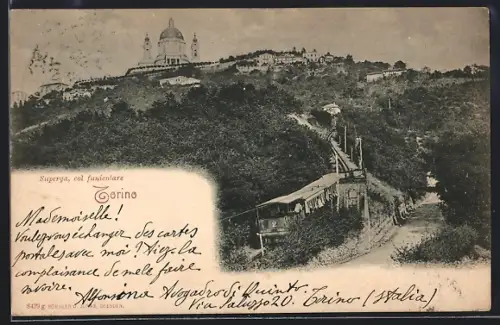 Superga, col funicolare
Torino
Mademoiselle!
Voulez vous échanger des cartes
postales avec moi? Ayez la
complaisance de me le faire
savoire.
Alfonsina Avogadro di Quinto,
Via Saluzzo 20. Torino (Italia)
6470 g
DRESDEN.